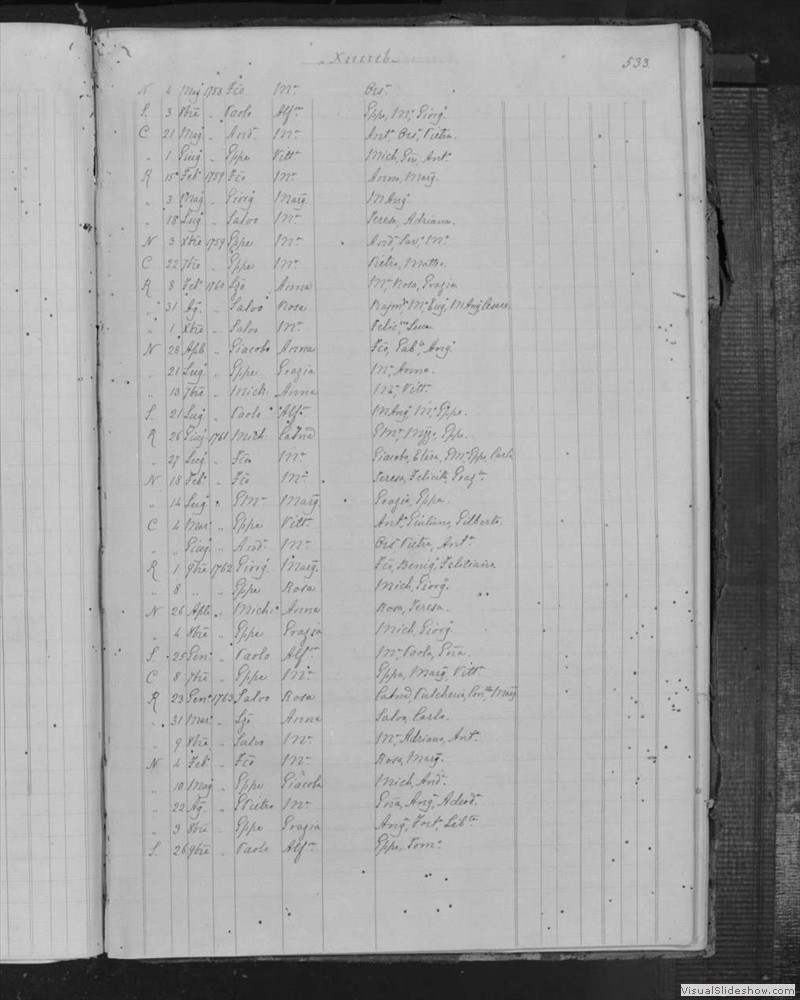 Xuereb
533
N 4 Mag 1758 Fco Ma Ors.
S. 3 8bre " Paolo Alfa Gppe, Ma, Giorg.
C 21 Mag. " And. Ma Ant. Ors. Pietra.
" 1 Giug " Gppe Vitt. Mich, Ant.
R 15 Feb 1759 Fco Ma Anna, Marg.
" 3 Mag. " Giorg Marg. M Ang.
" 18 Lug " Salvo Ma Teresa, Adriana.
N 3 Xbre 1759 Gppe Ma And, Sav, Ma
C 22 7bre " Gppe Ma Pietro, Matteo.
R 8 Feb 1760 Lzo Anna Ma Rosa, Grazia
" 31 Ag. " Salvo Rosa Ma, Luig, M Ang
" 1 Xbre " Salvo Ma Luca
N 28 Apl. " Giacobo Anna Fco, Gab, Ang.
" 21 Lug. " Gppe Grazia Ma Anna.
" 13 7bre " Mich. Anna Vitt.
S. 21 Lug " Paolo Alfa M Ang, Ma, Gppe.
R 26 Giug 1761 Mich. Catnd G Ma, Gppe.
" 27 Lug. " Fco Ma Giacobo, G Ma, Gppe, Carlo
N 18 Feb. " Fco Ma Teresa, Felicita, Graza
" 14 Lug. " G Ma Marg Grazia, Gppe.
C 4 Mar. " Gppe Vitt. Ant. Gilberto.
" " Giug " And. Ma Ors. Pietro, Ant.
R 1 9bre 1762 Giorg. Marg. Fco, Benig, Feliciana
" 8 " " Gppe Rosa Mich, Giorg.
N 26 Apl. " Mich. Anna Rosa, Teresa.
" 4 8bre " Gppe Grazia Mich, Giorg.
S. 25 Gen. " Paolo Alfa Ma Paola
C 8 7bre " Gppe Ma Gppa, Marg, Vitt.
R 23 Gen. 1763 Salvo Rosa Catnd, Pulcheria, Marg
" 31 Mar. " Lzo Anna Salvo, Carlo.
" 9 8bre " Salvo Ma Ma, Adriana, Ant.
N 4 Feb. " Fco Ma Rosa, Marg.
" 10 Mag " Gppe Giacoba Mich, And.
" 22 Ag. " G Pietro Ma Ang, Adeod.
" 3 8bre " Gppe Grazia Ang, Fort,
S. 26 9bre " Paolo Alfa Gppe, Tom.
VisualSlideshow.com